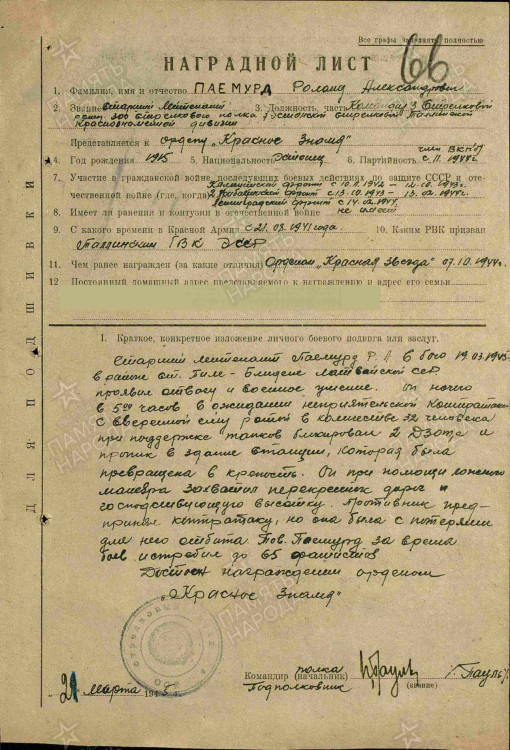 Все графы заполнять полностью
66
НАГРАДНОЙ ЛИСТ
1. Фамилия, имя и отчество ПАЕМУРД Роланд Александрович
2. Звание Старший лейтенант 3. Должность, часть Командир 3 Стрелковой
роты 300 стрелкового полка 7 Эстонской стрелковой Таллинской
Краснознаменной дивизии
Представляется к ордену „Красное Знамя"
4. Год рождения 1915 5. Национальность Эстонец 6. Партийность член ВКП/б/ с II. 1944г.
7. Участие в гражданской войне, последующих боевых действиях по защите СССР и оте-
чественной войне (где, когда) Калининский фронт с 10.11.1942 - 12.10.1943г.
2 Прибалтийский фронт с 13.10.1943 - 13.02.1944г.
Ленинградский фронт с 14.02.1944г.
8. Имеет ли ранения и контузии в отечественной войне не имеет
9. С какого времени в Красной Армии с 21.08.1941 года. 10. Каким РВК призван
Таллинским ГВК ЭССР
11. Чем ранее награжден (за какие отличия) Орденом „Красная Звезда" 07.10.1944г.
12 Постоянный домашний адрес представляемого к награждению и адрес его семьи
I. Краткое, конкретное изложение личного боевого подвига или заслуг.
Старший лейтенант Паемурд Р. А. в бою 19.03.1945г.
в районе ст. Латвийской ССР
проявил отвагу и военное умение. Он ночью
в 5.00 часов в ожидании неприятельской контратаки
с вверенной ему ротой в количестве 32 человека
при поддержке танков блокировал 2 ДЗОТа и
проник в здание станции, которая была
превращена в крепость. Он при помощи ложного
маневра захватил перекресток дорог и
господствующую высотку. Противник пред-
принял контратаку, но она была с потерями
для него отбита. Тов. Паемурд за время
боев истребил до 65 фашистов
Достоин награждения орденом
„Красное Знамя"
Командир (начальник) полка
Подполковник (звание) /Пауль/
21 Марта 1945 г.
ДЛЯ ПОДШИВКИ
ПАМЯТЬ НАРОДА